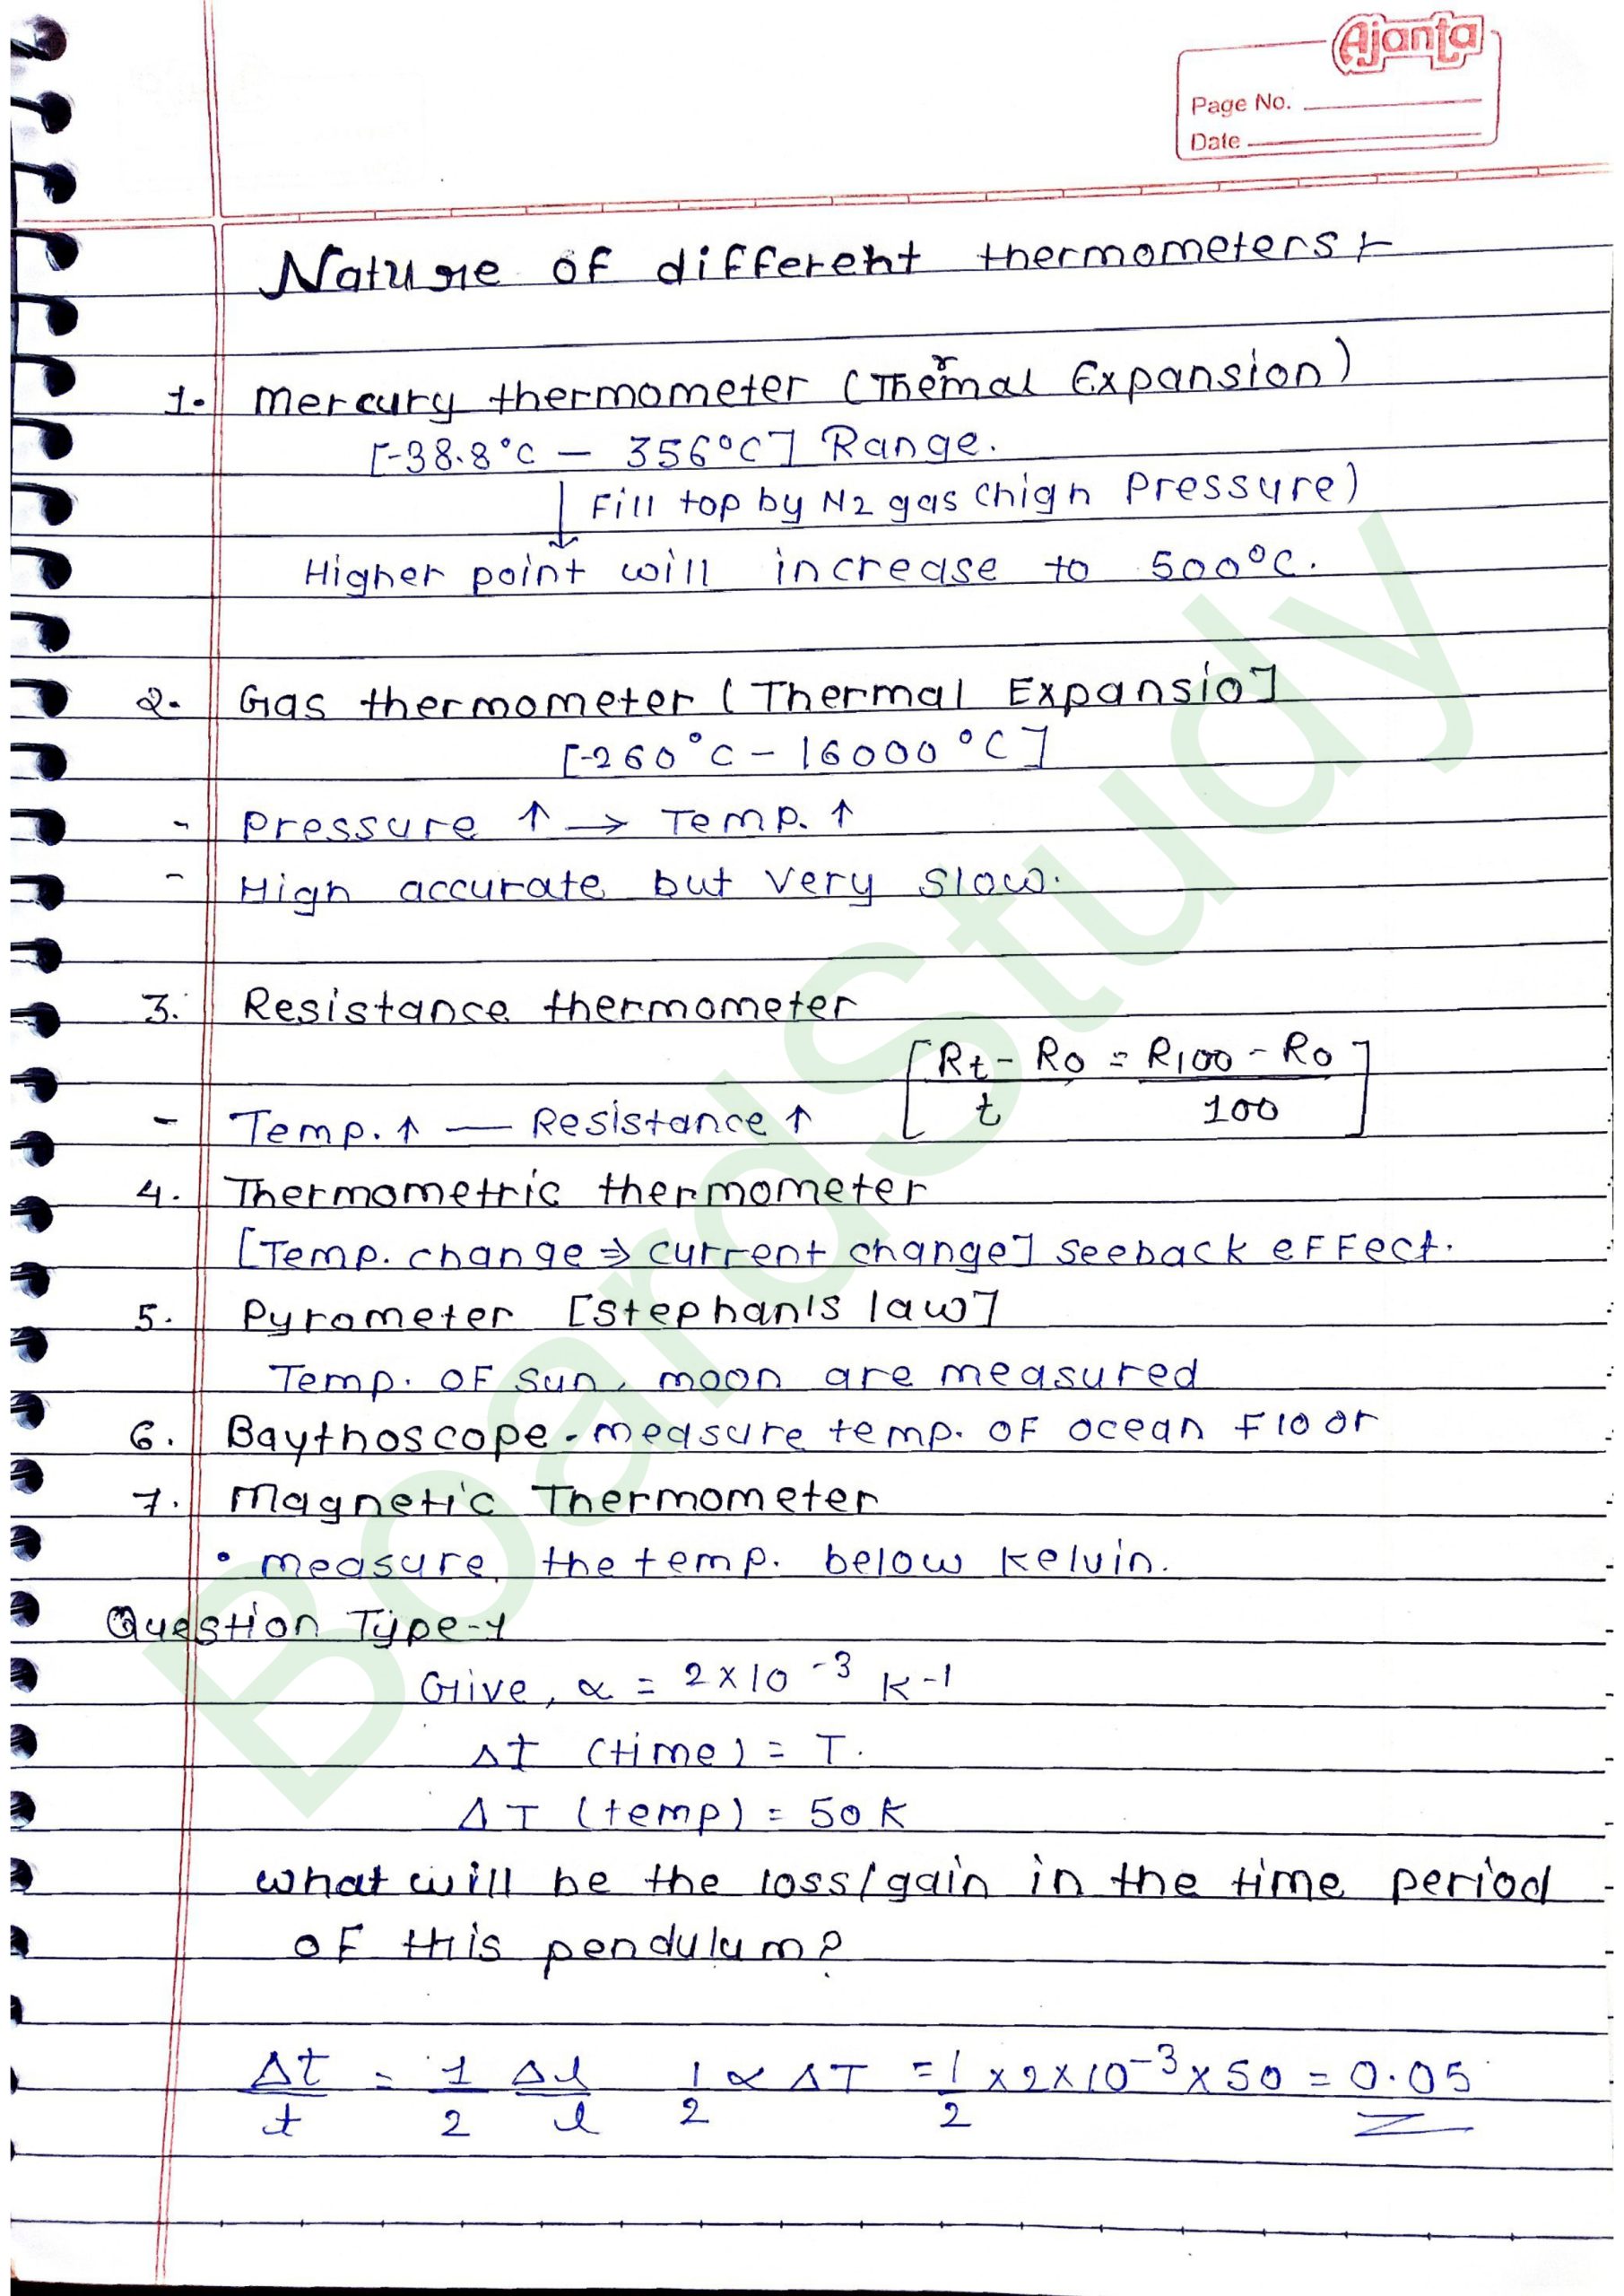 Ajanta
Page No.
Date
Nature of different thermometers :-
1. Mercury thermometer (Thermal Expansion)
[-38.8°C – 356°C] Range.
↓ Fill top by N2 gas (high Pressure)
Higher point will increase to 500°C.
2. Gas thermometer [Thermal Expansio]
[-260°C - 16000°C]
- Pressure ↑ → Temp. ↑
- High accurate but very slow.
3. Resistance thermometer
[Rt - R0 / t = R100 - R0 / 100]
- Temp. ↑ — Resistance ↑
4. Thermometric thermometer
[Temp. change ⇒ current change] seeback effect.
5. Pyrometer [Stephan's law]
Temp. of sun, moon are measured
6. Baythoscope - measure temp. of ocean floor
7. Magnetic Thermometer
• measure the temp. below kelvin.
Question Type-1
Give, α = 2×10^-3 K-1
Δt (time) = T.
ΔT (temp) = 50K
what will be the loss/gain in the time period
of this pendulum?
Δt/t = 1/2 Δl/l 1/2 α ΔT = 1/2 × 2×10^-3 × 50 = 0.05
BoardStudy